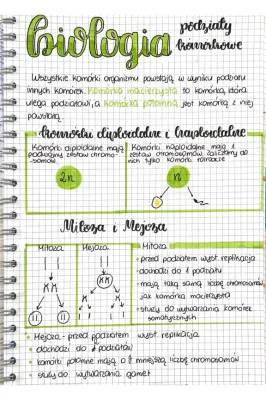 biologia
podziały
komórkowe
Wszystkie komórki organizmu powstają w wyniku podziału
innych komórek. Komórka macierzysta to komórka, która
ulega podziałowi, a komórka potomna jest komórką z niej
powstałą.
Komórki diploidalne i haploidalne
Komórki diploidalne mają
podwójny zestaw chromo-
somów
2n
Komórki haploidalne mają 1
zestaw chromosomów zaliczamy do
nich tylko komórki rozrodcze
n
Mitoza i Mejoza
Mitoza
Mejoza
Mitoza
przed podziałem wyst. replikacja
dochodzi do 1 podziału
mają taką samą liczbę chromosomów
jak komórka macierzysta
służy do wytwarzania komórek
somatycznych
Mejoza - przed podziałem wyst. replikacja
dochodzi do podziałów
komórki potomne mają o mniejszą liczbę chromosomów
służy do wytwarzania gamet